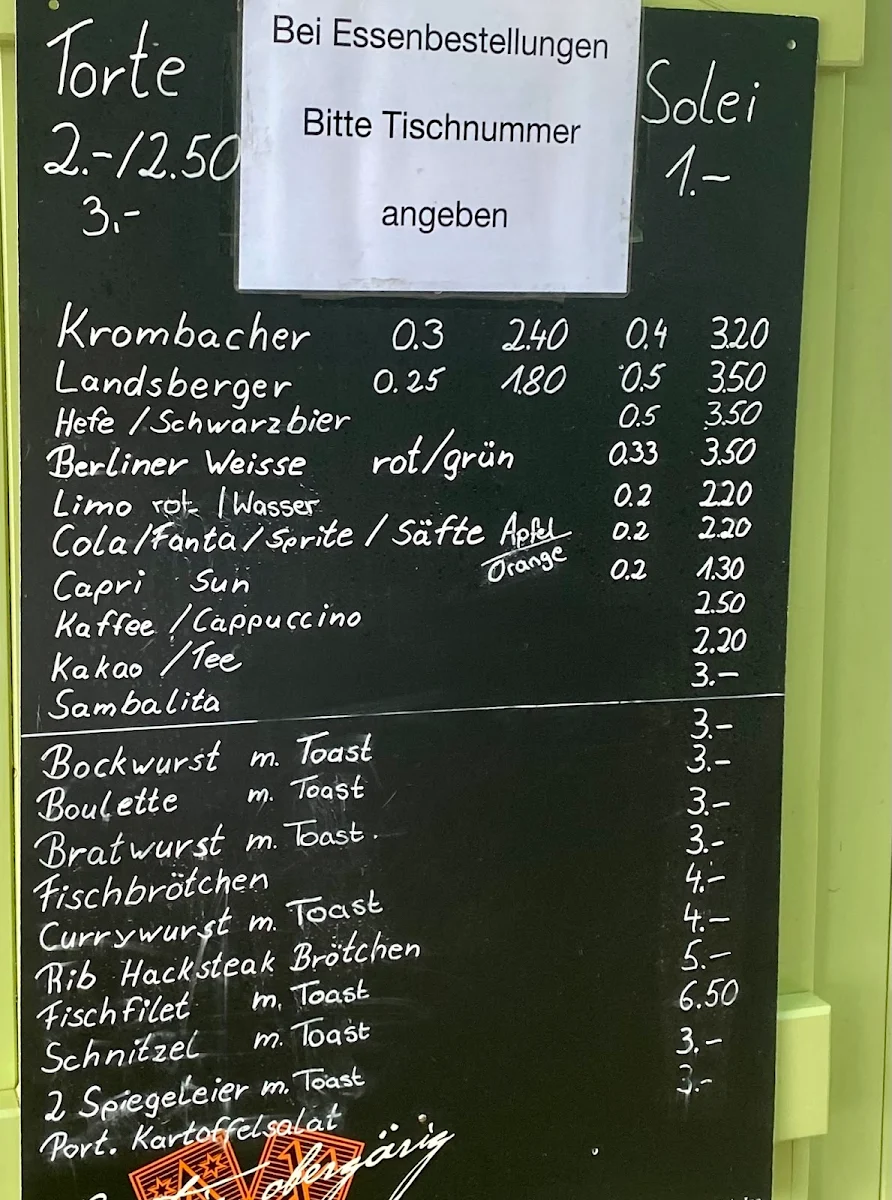 Bei Essenbestellungen
Bitte Tischnummer
angeben
Torte
2.-/2.50
3.-
Solei
1.-
Krombacher 0.3 2.40 0.4 3.20
Landsberger 0.25 1.80 0.5 3.50
Hefe / Schwarzbier 0.5 3.50
Berliner Weisse rot/grün 0.33 3.50
Limo rot / Wasser 0.2 2.20
Cola/Fanta/Sprite / Säfte Apfel 0.2 2.20
Orange
Capri Sun 0.2 1.30
Kaffee / Cappuccino 2.50
Kakao / Tee 2.20
Sambalita 3.-
Bockwurst m. Toast 3.-
Boulette m. Toast 3.-
Bratwurst m. Toast. 3.-
Fischbrötchen 3.-
Currywurst m. Toast 4.-
Rib Hacksteak Brötchen 4.-
Fischfilet m. Toast 5.-
Schnitzel m. Toast 6.50
2 Spiegeleier m. Toast 3.-
Port. Kartoffelsalat 3.-
obergärig